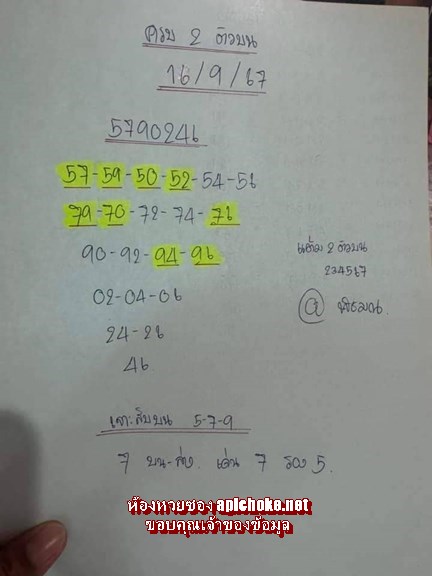 ครบ 2 ตัวบน
16/9/67
5790246
57-59-50-52-54-56
79-70-72-74-76
90-92-94-96
02-04-06
24-26
46
แต้ม 2 ตัวบน
234567
เจาะสิบบน 5-7-9
7 บน-ล่าง เด่น 7 รอง 5.
ห้องหวยซอง apichoke.net
ขอบคุณเจ้าของข้อมูล